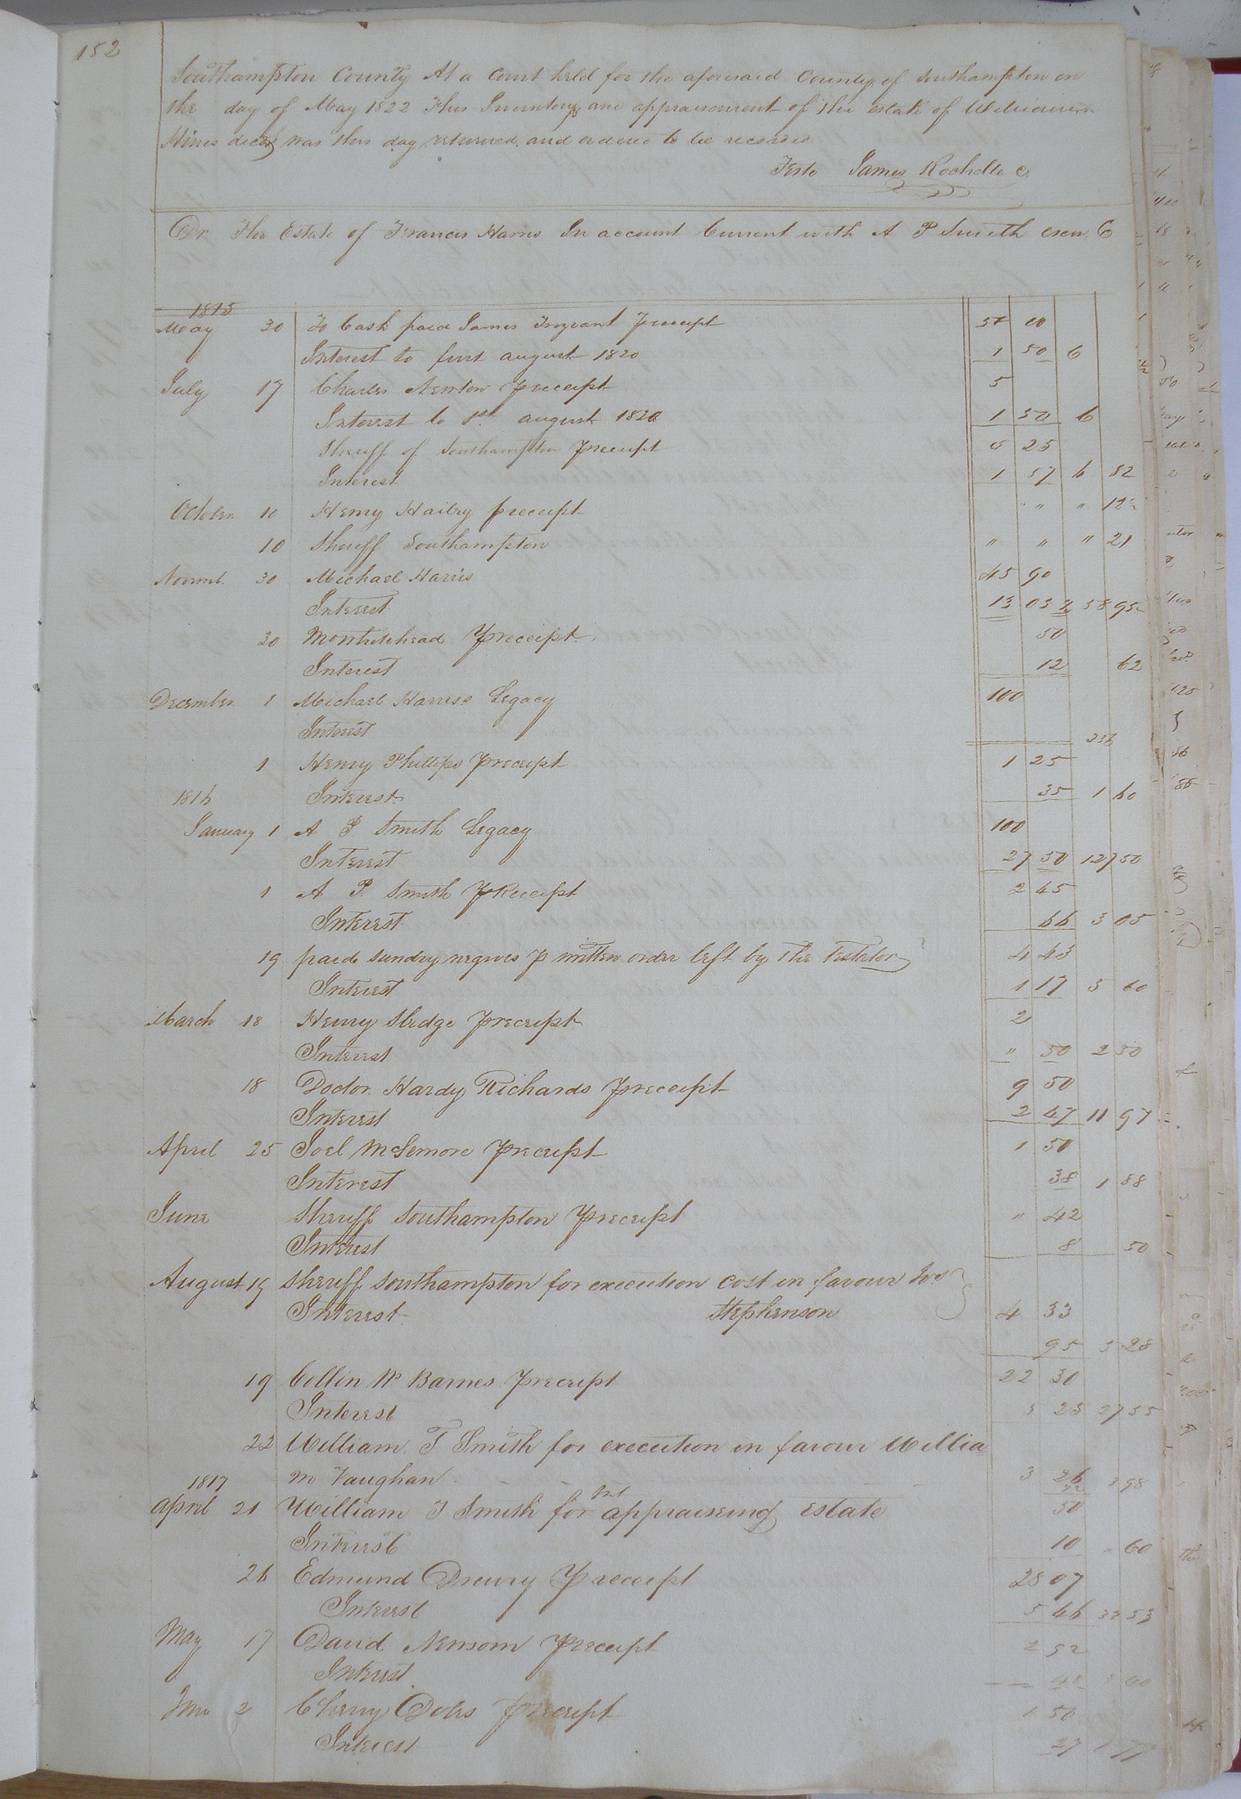 152
Southampton County At a Court held for the aforesaid County of Southampton on
the day of May 1822 This Inventory and appraisement of the estate of William
Hines decd was this day returned and ordered to be recorded
Teste James Rochelle C.
Dr The Estate of Francis Harris In account Current with A P Smith exor C
1815
May 30 To Cash paid James
Interest to first august 1820 1 50 6
July 17 Charles Newton preceipt 5
Interest to 1st august 1820 1 50 6
Sheriff of Southampton preceipt 5 25
Interest 1 57 6 82
October 10 Henry Hailey preceipt " " " 12½
10 Sheriff Southampton " " " 21
Novmb. 30 Michael Harris 45 90
Interest 13 05 58 95
30 preceipt 50
Interest 12 62
December 1 Michael Harriss Legacy 100
Interest
1 Henry Phillips preceipt 1 25
1816 Interest 35 1 60
January 1 A P Smith Legacy 100
Interest 27 50 127 50
1 A P Smith pReceipt 2 45
Interest 66 3 05
19 paid sundry negroes p written order left by the Testator 4 43
Interest 1 17 5 60
March 18 Henry Sledge preceipt 2
Interest " 50 2 50
18 Doctor Hardy Richards preceipt 9 50
Interest 2 47 11 97
April 25 Joel McLemore preceipt 1 50
Interest 38 1 88
June Sheriff Southampton preceipt " 42
Interest 8 50
August 19 Sheriff Southampton for execution cost in favour
Interest Stephenson 4 33
95 5 28
19 Collin W Barnes preceipt 22 30
Interest 5 25 27 55
22 William T Smith for execution in favour Willia
1817 m Vaughan 3 26 98
april 21 William T Smith for appraiseing Estate 50
Interest 10 " 60
26 Edmund Drewry preceipt 28 07
Interest 5 66 53
May 17 David Newsom preceipt 2 52
Interest
2 Cherry preceipt 1 50
Interest 27 1 77